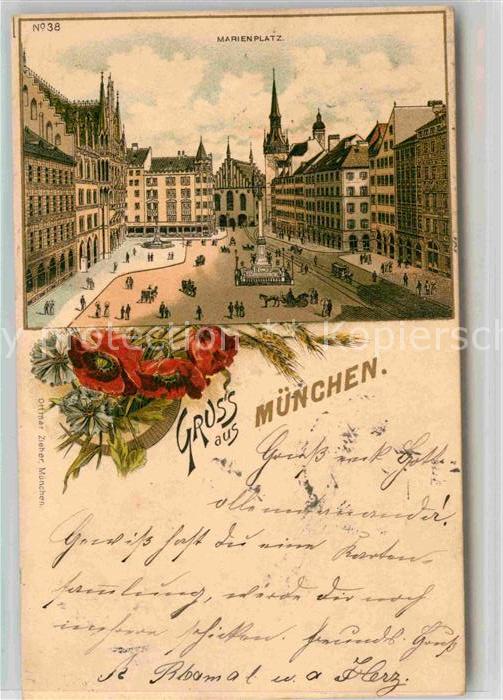 Nº 38
MARIENPLATZ.
GRUSS aus MÜNCHEN.
Ottmar Zieher, München.
Grüß enk Gott
alle mitananda!
Gewiß hast du eine Karten-
sammlung, werde dir noch
mehrere schicken. Freundl. Gruß
u. a Herz.